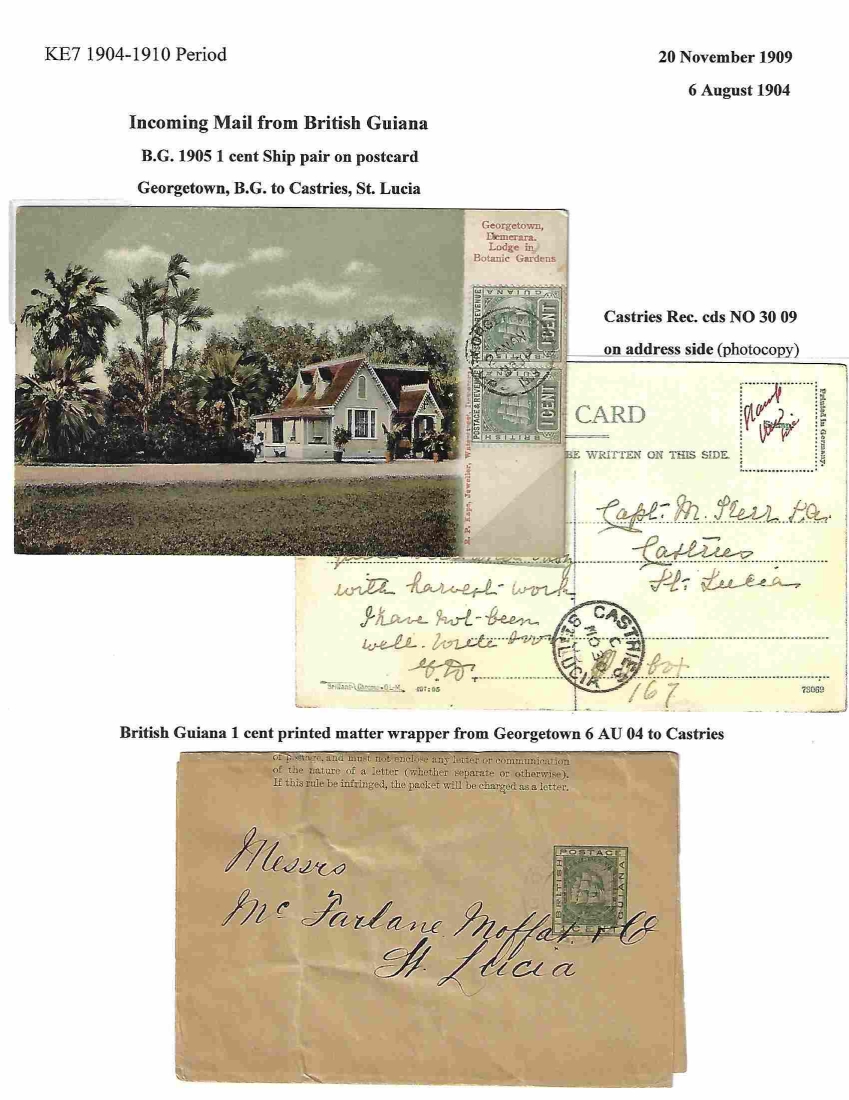 KE7 1904-1910 Period
20 November 1909
6 August 1904
Incoming Mail from British Guiana
B.G. 1905 1 cent Ship pair on postcard
Georgetown, B.G. to Castries, St. Lucia
Georgetown,
Demerara.
Lodge in
Botanic Gardens
POSTAGE & REVENUE
BRITISH GUIANA
1 CENT
POSTAGE & REVENUE
BRITISH
1 CENT
Castries Rec. cds NO 30 09
on address side (photocopy)
CARD
BE WRITTEN ON THIS SIDE.
Printed in Germany.
Capt. M.
Castries
St. Lucia
with harvest work
I have not been
well. Write
CASTRIES
ST LUCIA
C
NO 30
09
Box
167
73069
British Guiana 1 cent printed matter wrapper from Georgetown 6 AU 04 to Castries
and must not enclose any letter or communication
of the nature of a letter (whether separate or otherwise).
If this rule be infringed, the packet will be charged as a letter.
POSTAGE
BRITISH
GUIANA
CENT
Messrs
Mc Farlane Moffat & Co
St. Lucia